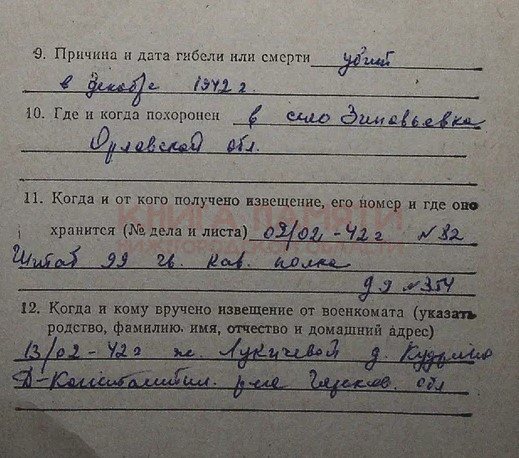 9. Причина и дата гибели или смерти убит
в декабре 1942 г.
10. Где и когда похоронен в село Зиновьевка
Орловской обл.
11. Когда и от кого получено извещение, его номер и где оно
КНИГА ПАМЯТИ
хранится (№ дела и листа) 07/02-42 г №32
НИЖЕГОРОДСКОЙ ОБЛАСТИ
Штаб 99 гв. кав. полка
д 9 №354
12. Когда и кому вручено извещение от военкомата (указать
родство, фамилию, имя, отчество и домашний адрес)
13/02-42 г ж. Лукичевой д. Кудрино
Д-Константин. р-на Горьков. обл